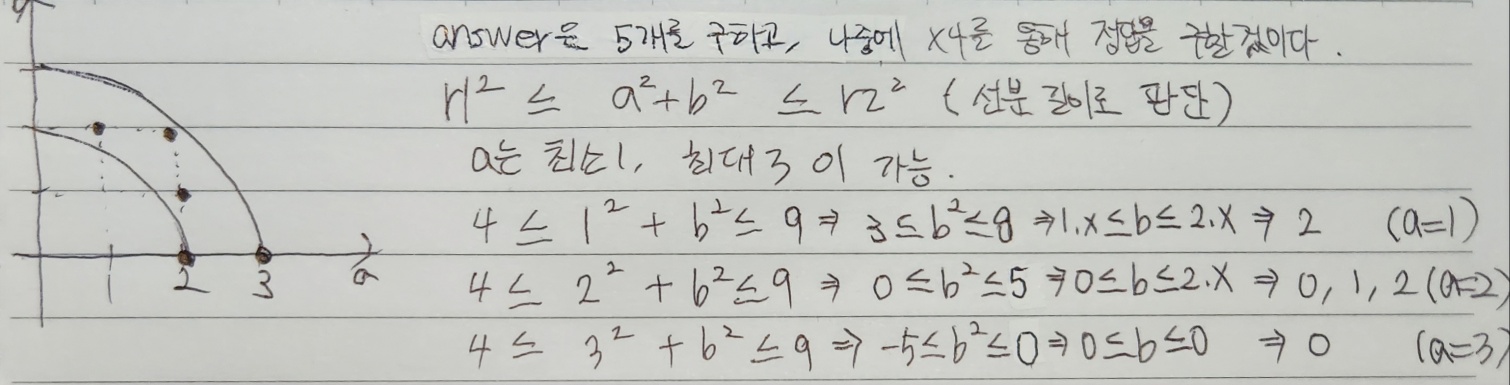 answer은 5개를 구하고, 나중에 x4를 통해 정답을 구할것이다.
r1² ≤ a²+b² ≤ r2² (선분 길이로 판단)
a는 최소1, 최대3 이 가능.
4 ≤ 1² + b² ≤ 9 ⇒ 3≤b²≤8 ⇒1.x≤b≤2.x ⇒ 2 (a=1)
4 ≤ 2² + b²≤9 ⇒ 0≤b²≤5 ⇒0≤b≤2.x ⇒ 0, 1, 2 (a=2)
4 ≤ 3² + b² ≤9 ⇒ -5≤b²≤0⇒0≤b≤0 ⇒ 0 (a=3)
1 2 3 a